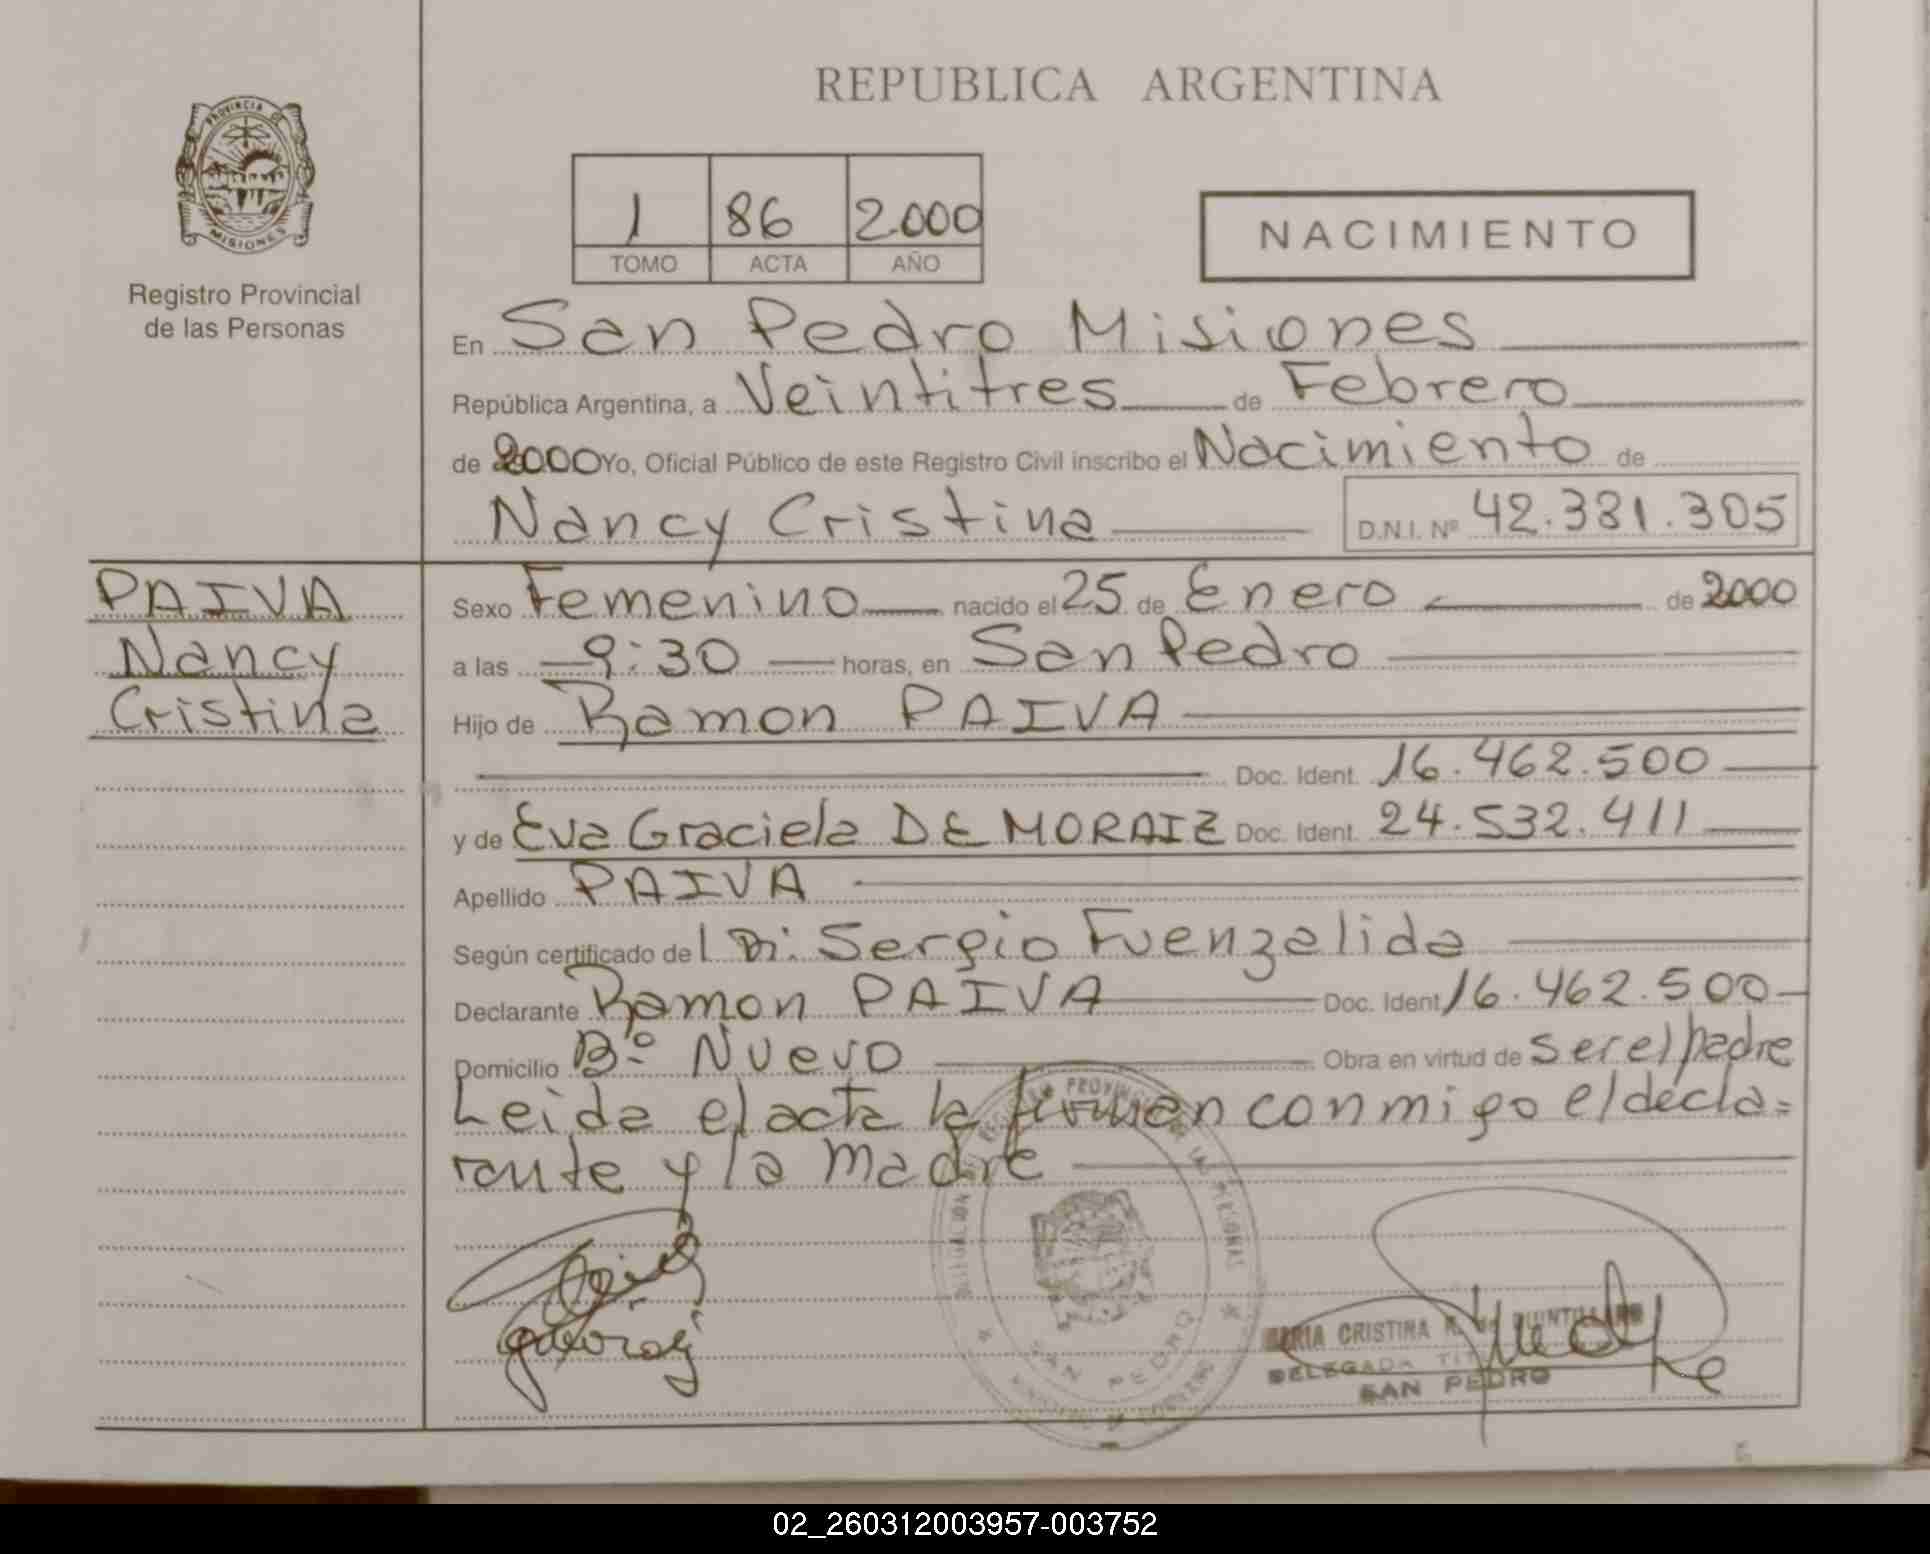 REPUBLICA ARGENTINA
PROVINCIA DE
MISIONES
Registro Provincial
de las Personas
1 86 2.000
TOMO ACTA AÑO
NACIMIENTO
En San Pedro Misiones
República Argentina, a Veintitres de Febrero
de 2000 Yo, Oficial Público de este Registro Civil inscribo el Nacimiento de
Nancy Cristina D.N.I. Nº 42.381.305
PAIVA
Nancy
Cristina
Sexo Femenino nacido el 25 de Enero de 2000
a las 9:30 horas, en San Pedro
Hijo de Ramon PAIVA
Doc. Ident. 16.462.500
y de Eva Graciela DE MORAIZ Doc. Ident. 24.532.411
Apellido PAIVA
Según certificado del Dr: Sergio Fuenzalida
Declarante Ramon PAIVA Doc. Ident. 16.462.500
Domicilio Bº Nuevo Obra en virtud de ser el padre
Leida el acta la firman conmigo el decla=
rante y la madre
SAN PEDRO
MARIA CRISTINA
DELEGADA
SAN PEDRO
02_260312003957-003752